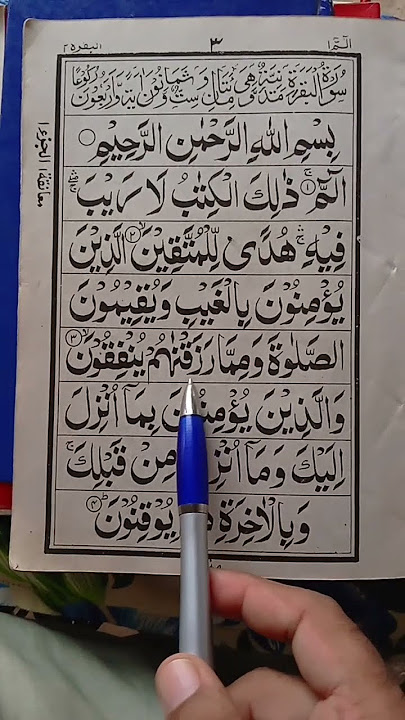 البقرة ٢
٣
الٓمّٓ ١
سُوْرَةُ الْبَقَرَةِ مَدَنِيَّةٌ وَّهِىَ مِائَتَانِ وَسِتٌّ وَّثَمَانُوْنَ اٰيَةً وَّاَرْبَعُوْنَ رُكُوْعًا
بِسْمِ اللّٰهِ الرَّحْمٰنِ الرَّحِيْمِ
الٓمّٓ ۚ ١ ذٰلِكَ الْكِتٰبُ لَا رَيْبَ ۛ
فِيْهِ ۛ هُدًى لِّلْمُتَّقِيْنَ ۙ ٢ الَّذِيْنَ
يُؤْمِنُوْنَ بِالْغَيْبِ وَيُقِيْمُوْنَ
الصَّلٰوةَ وَمِمَّا رَزَقْنٰهُمْ يُنْفِقُوْنَ ۙ ٣
وَالَّذِيْنَ يُؤْمِنُوْنَ بِمَآ اُنْزِلَ
اِلَيْكَ وَمَآ اُنْزِلَ مِنْ قَبْلِكَ ۚ
وَبِالْاٰخِرَةِ يُوْقِنُوْنَ ؕ ٤